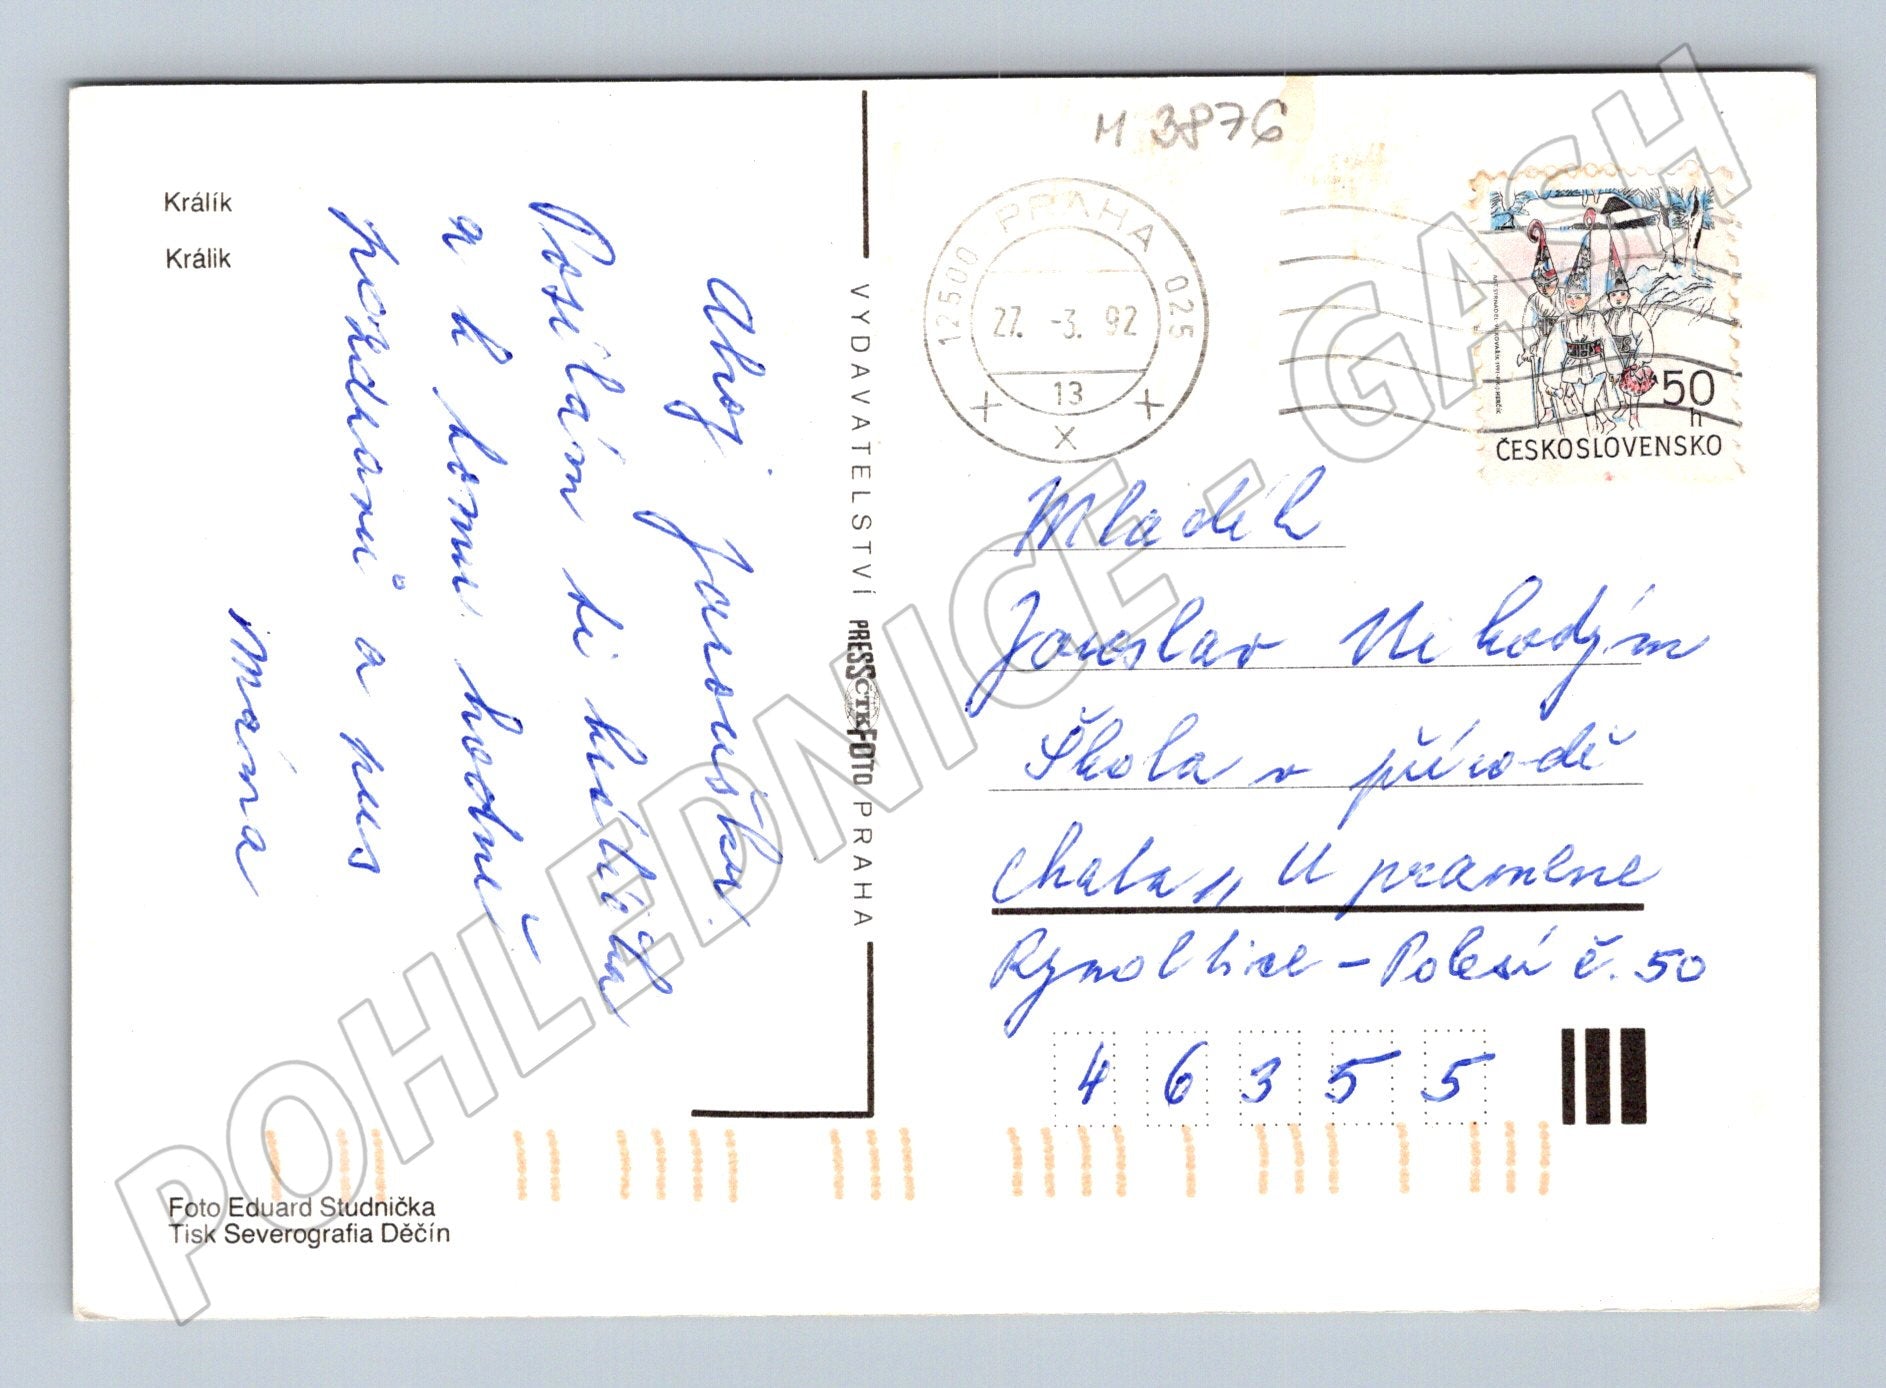 Králík
Králik
Ahoj Jaroušku.
Posílám ti králíčka
a k tomu hodně
pozdravů a pus
Máma
VYDAVATELSTVÍ PRESSFOTO PRAHA
ČTK
M 3876
12500 PRAHA 025
27. -3. 92
13
X
50
h
ČESKOSLOVENSKO
Mladék
Jaroslav Nikodým
Škola v přírodě
chata „ U pramene
Rynoltice - Polesí č. 50
46355
Foto Eduard Studnička
Tisk Severografia Děčín
POHLEDNICE - GASH